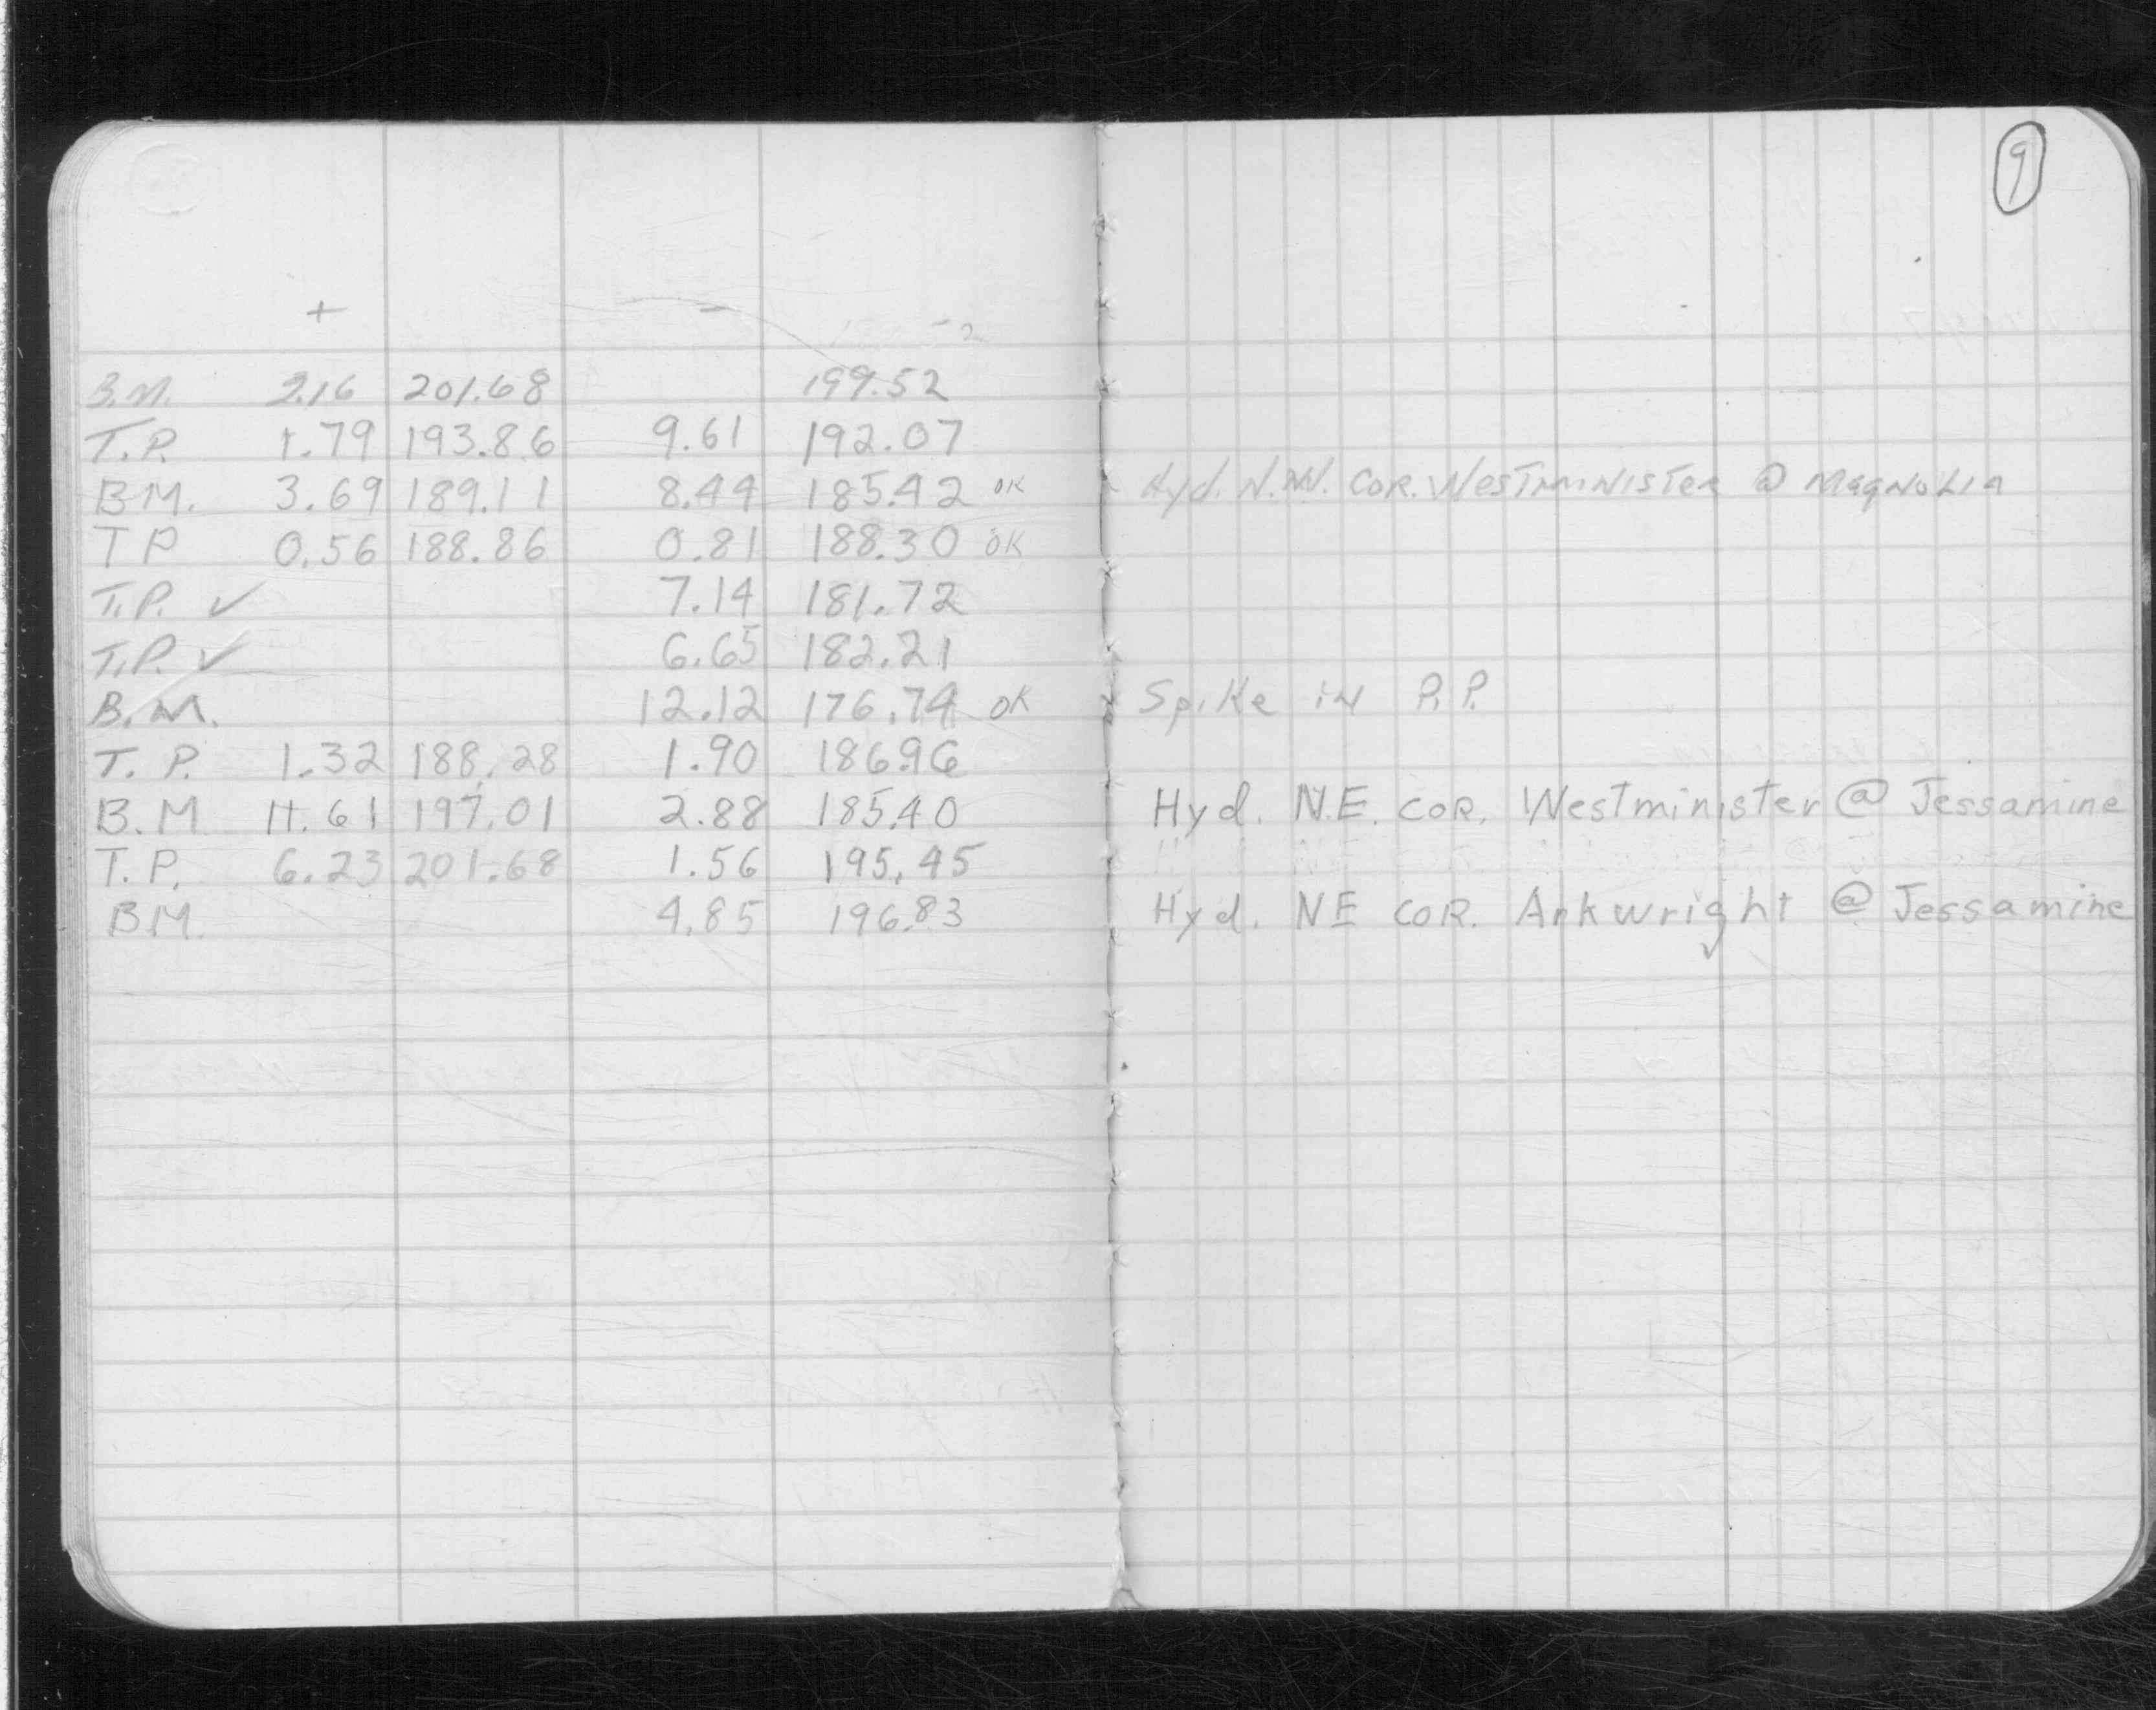 9
+ -
B.M. 2.16 201.68 199.52
T.P. 1.79 193.86 9.61 192.07
B.M. 3.69 189.11 8.44 185.42 OK Hyd. N.W. COR. WESTMINISTER @ MAGNOLIA
T P 0.56 188.86 0.81 188.30 OK
T.P. ✓ 7.14 181.72
T.P. ✓ 6.65 182.21
B.M. 12.12 176.74 OK Spike in P.P.
T. P. 1.32 188.28 1.90 186.96
B.M 11.61 197.01 2.88 185.40 Hyd. N.E. COR. Westminister @ Jessamine
T. P. 6.23 201.68 1.56 195.45
BM. 4.85 196.83 Hyd. NE COR. Arkwright @ Jessamine